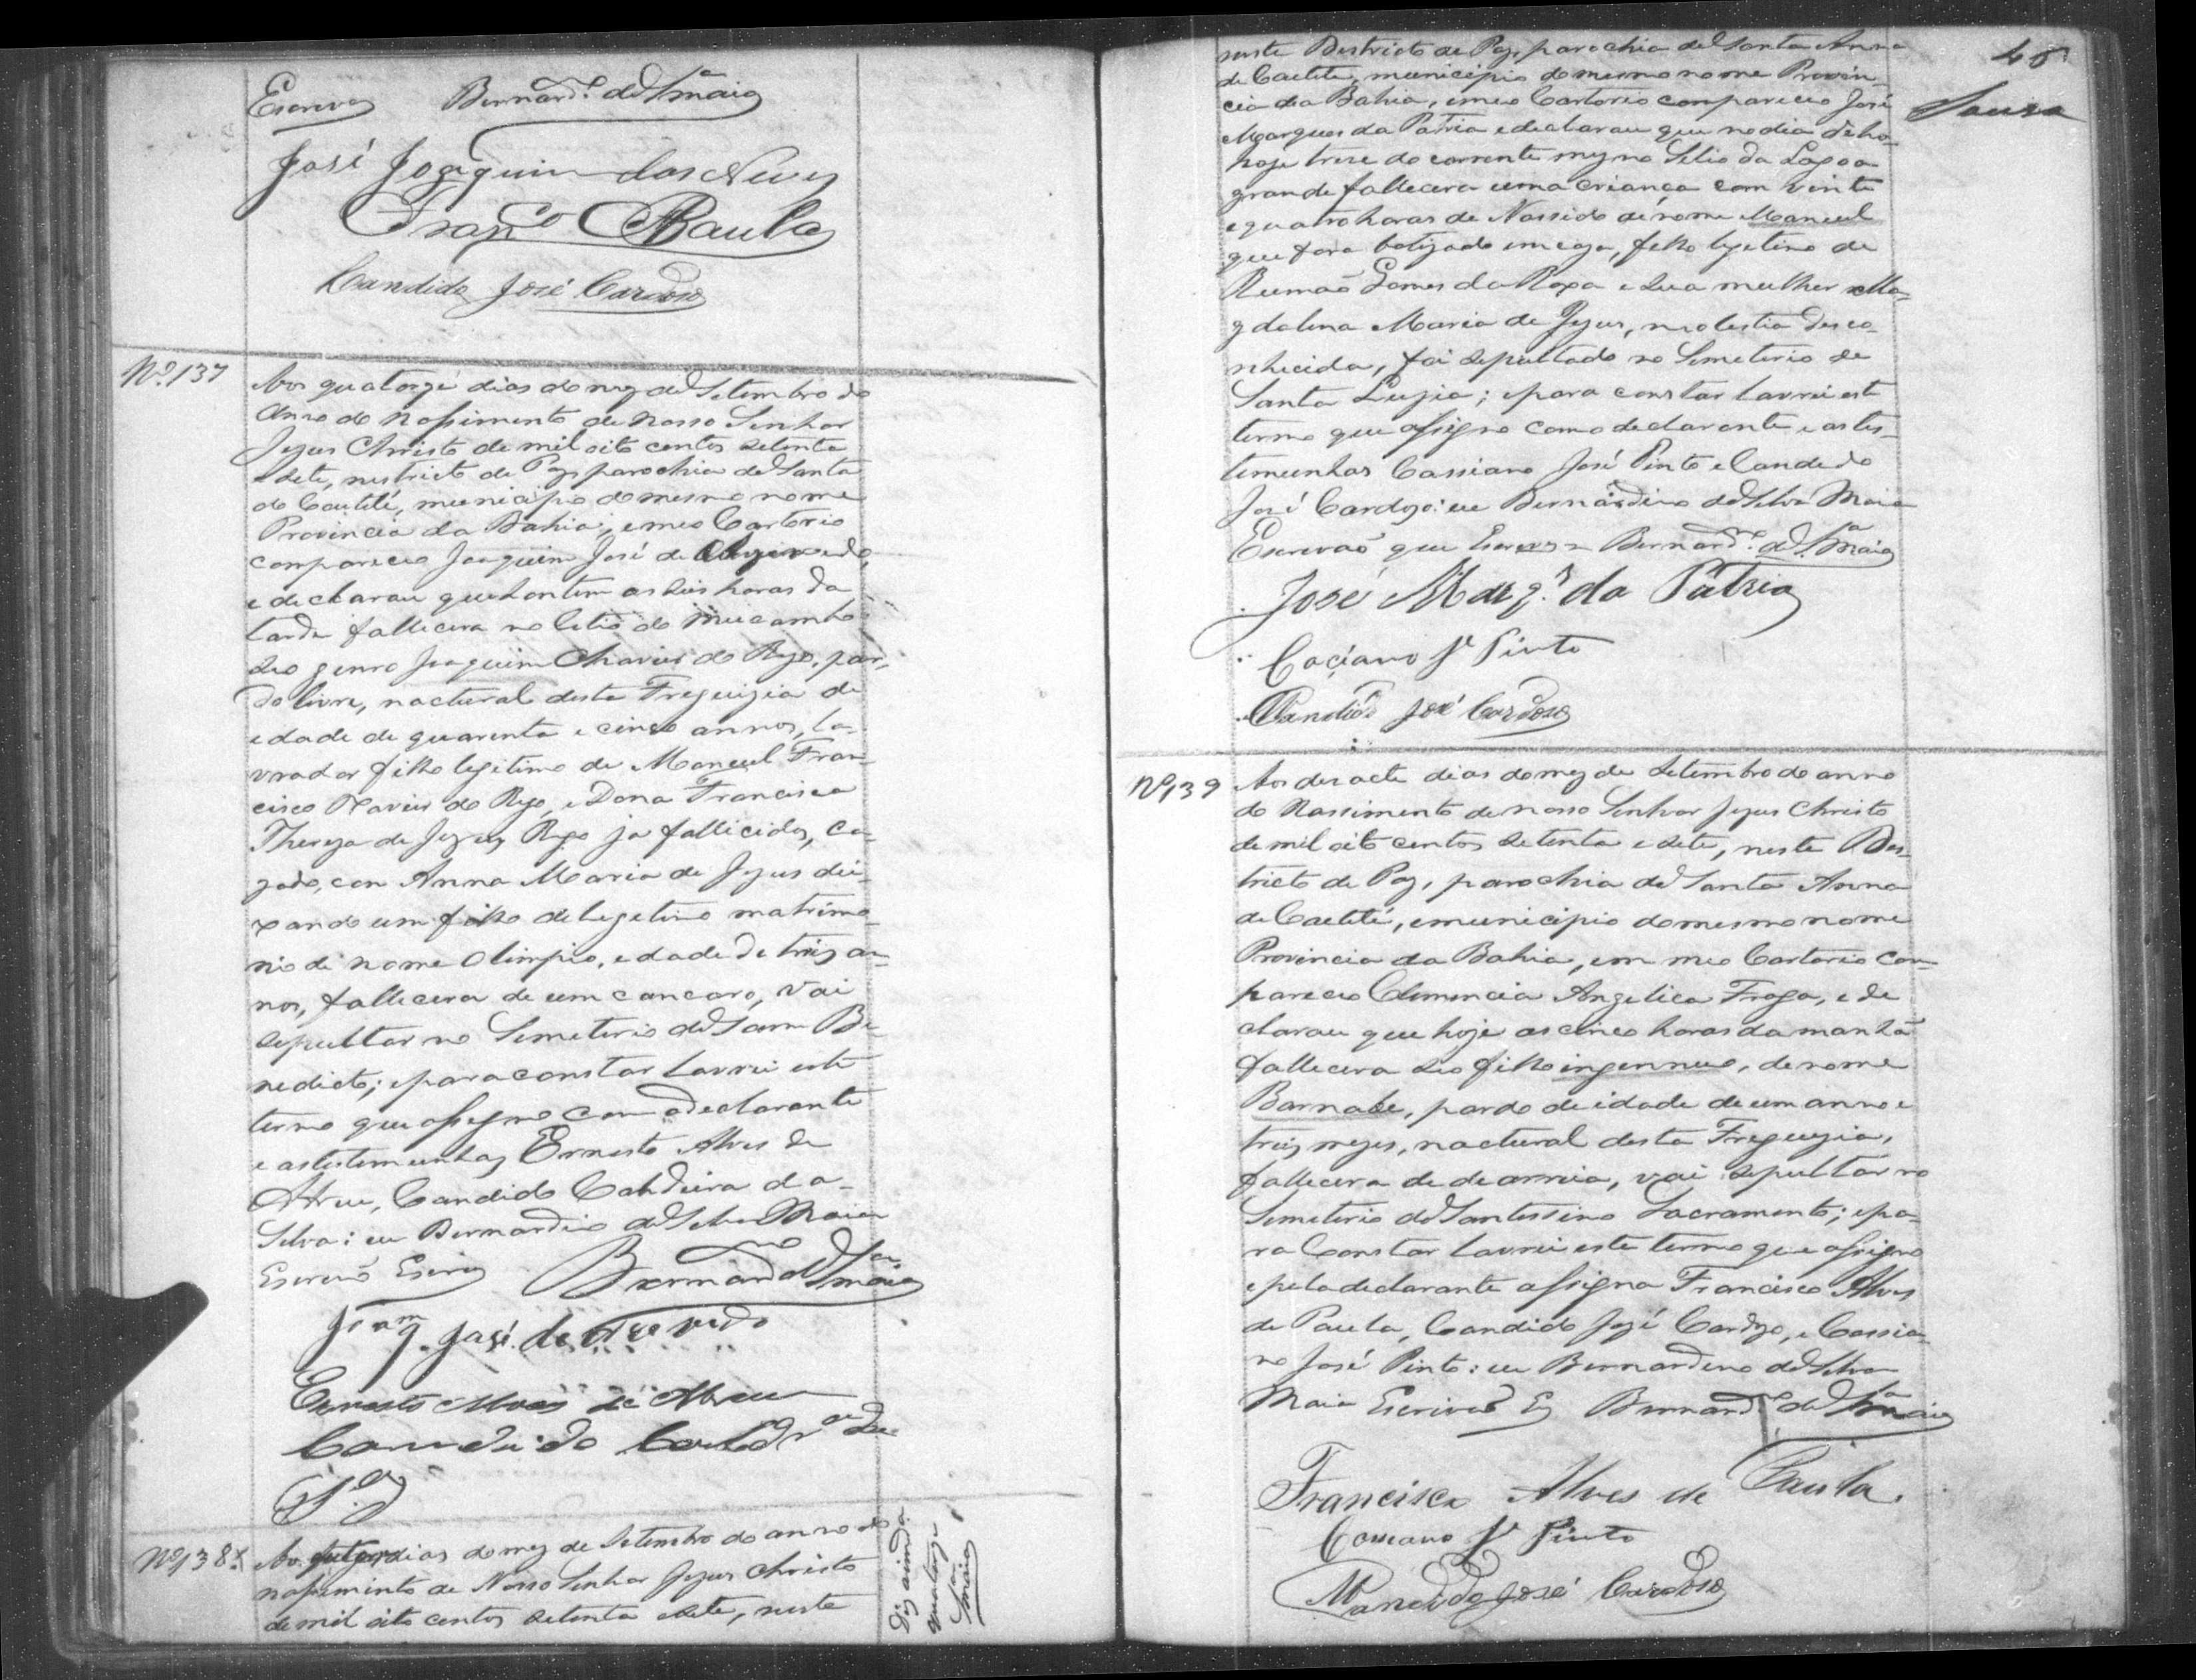 Escrevy Bernard.º da S.ª Maia
José Joaquim das Neves
Fran.co A Paula
Candido José Cardoso
Nº 137
Aos quatorze dias do mez de Setembro do
Anno do Nassimento de Nosso Senhor
Jezus Christo de mil oito centos setenta
e sete, nestricto de Paz, parochia de Santa
do Caetité, municipio do mesmo nome
Provincia da Bahia, em meo Cartorio
compareceo Joaquim José de Azevedo,
e declarau que hontem as seis horas da
tarde fallecera no Sitio do Mucambo
seo genro Joaquim Chavier do Rego, par-
do livre, nactural desta Freguizia de
edade de quarenta e cinco annos, la-
vrador filho legitimo de Manuel Fran-
cisco Xavier do Rego, e Dona Francisca
Thereza de Jezus Rego ja fallicidos, ca-
zado, con Anna Maria de Jezus dei-
xando um filho de legetimo matrimo-
nio de nome Olimpio, edade de treis an-
nos, fallecera de um cancaro, vai
sepultar no Semeterio de Sam Be-
nedicto; e para constar lavrei este
termo que assigno com o declarante
e as testemunhas Ernesto Alves de
Abreu, Candido Caldeira da
Silva: eu Bernardino da Silva Maia
Escrivão Escrevy Bernard.no da S.ª Maia
Joaq.m José de Azevedo
Ernesto Alves de Abreu
Candido Cald.ra da
S.ª
Nº 138
Aos dias do mez de Setembro do anno do
nassimento de Nosso Senhor Jezus Christo
de mil oito centos setenta e sete, neste
Diz ainda
quatorze
Maia
48
Souza
neste Destricto de Paz, parochia de Santa Anna
de Caetité, municipio do mesmo nome Provin-
cia da Bahia, em meo Cartorio compareceo José
Marques da Patria e declarau que no dia de ho-
hoje treze do corrente mez no Sitio da Lagoa
grande fallecera uma criança com vinte
e quatro horas de Nassido de nome Manuel
que fora batizado em caza, filho legetimo de
Rumão Gomes da Roxa e sua mulher Ma-
gdalena Maria de Jezus, molestia desco-
nhecida, foi sepultado no Semeterio de
Santa Luzia; e para constar lavrei este
termo que assigno com o declarante e as tes-
temunhas Cassiano José Pinto e Candido
José Cardozo: eu Bernardino da Silva Maia
Escrivaõ que Escrevy Bernard.º da S.ª Maia
José Marq.s da Patria
Caçiano J.e Pinto
Candido José Cardoso
Nº 139
Aos desacete dias do mez de Setembro do anno
do Nassimento de nosso Senhor Jezus Christo
de mil oito centos setenta e sete, neste Des-
tricto de Paz, parochia de Santa Anna
de Caetité, e municipio do mesmo nome
Provincia da Bahia, em meo Cartorio com-
pareceo Clemencia Angelica Fraga, e de
clarau que hoje as cinco horas da manhã
fallecera seo filho ingennuo, de nome
Barnabe, pardo de idade de um anno e
treis mezes, nactural desta Freguezia,
fallecera de dearreia, vai sepultar no
Semeterio do Santessimo Sacramento; e pa-
ra Constar lavrei este termo que assigno
e pela declarante assigna Francisco Alves
de Paula, Candido José Cardozo, e Cassia-
no José Pinto: eu Bernardino da Silva
Maia Escrivaõ Ey Bernard.º da S.ª Maia
Francisco Alves de Paula
Cassiano J.e Pinto
Candido José Cardoso